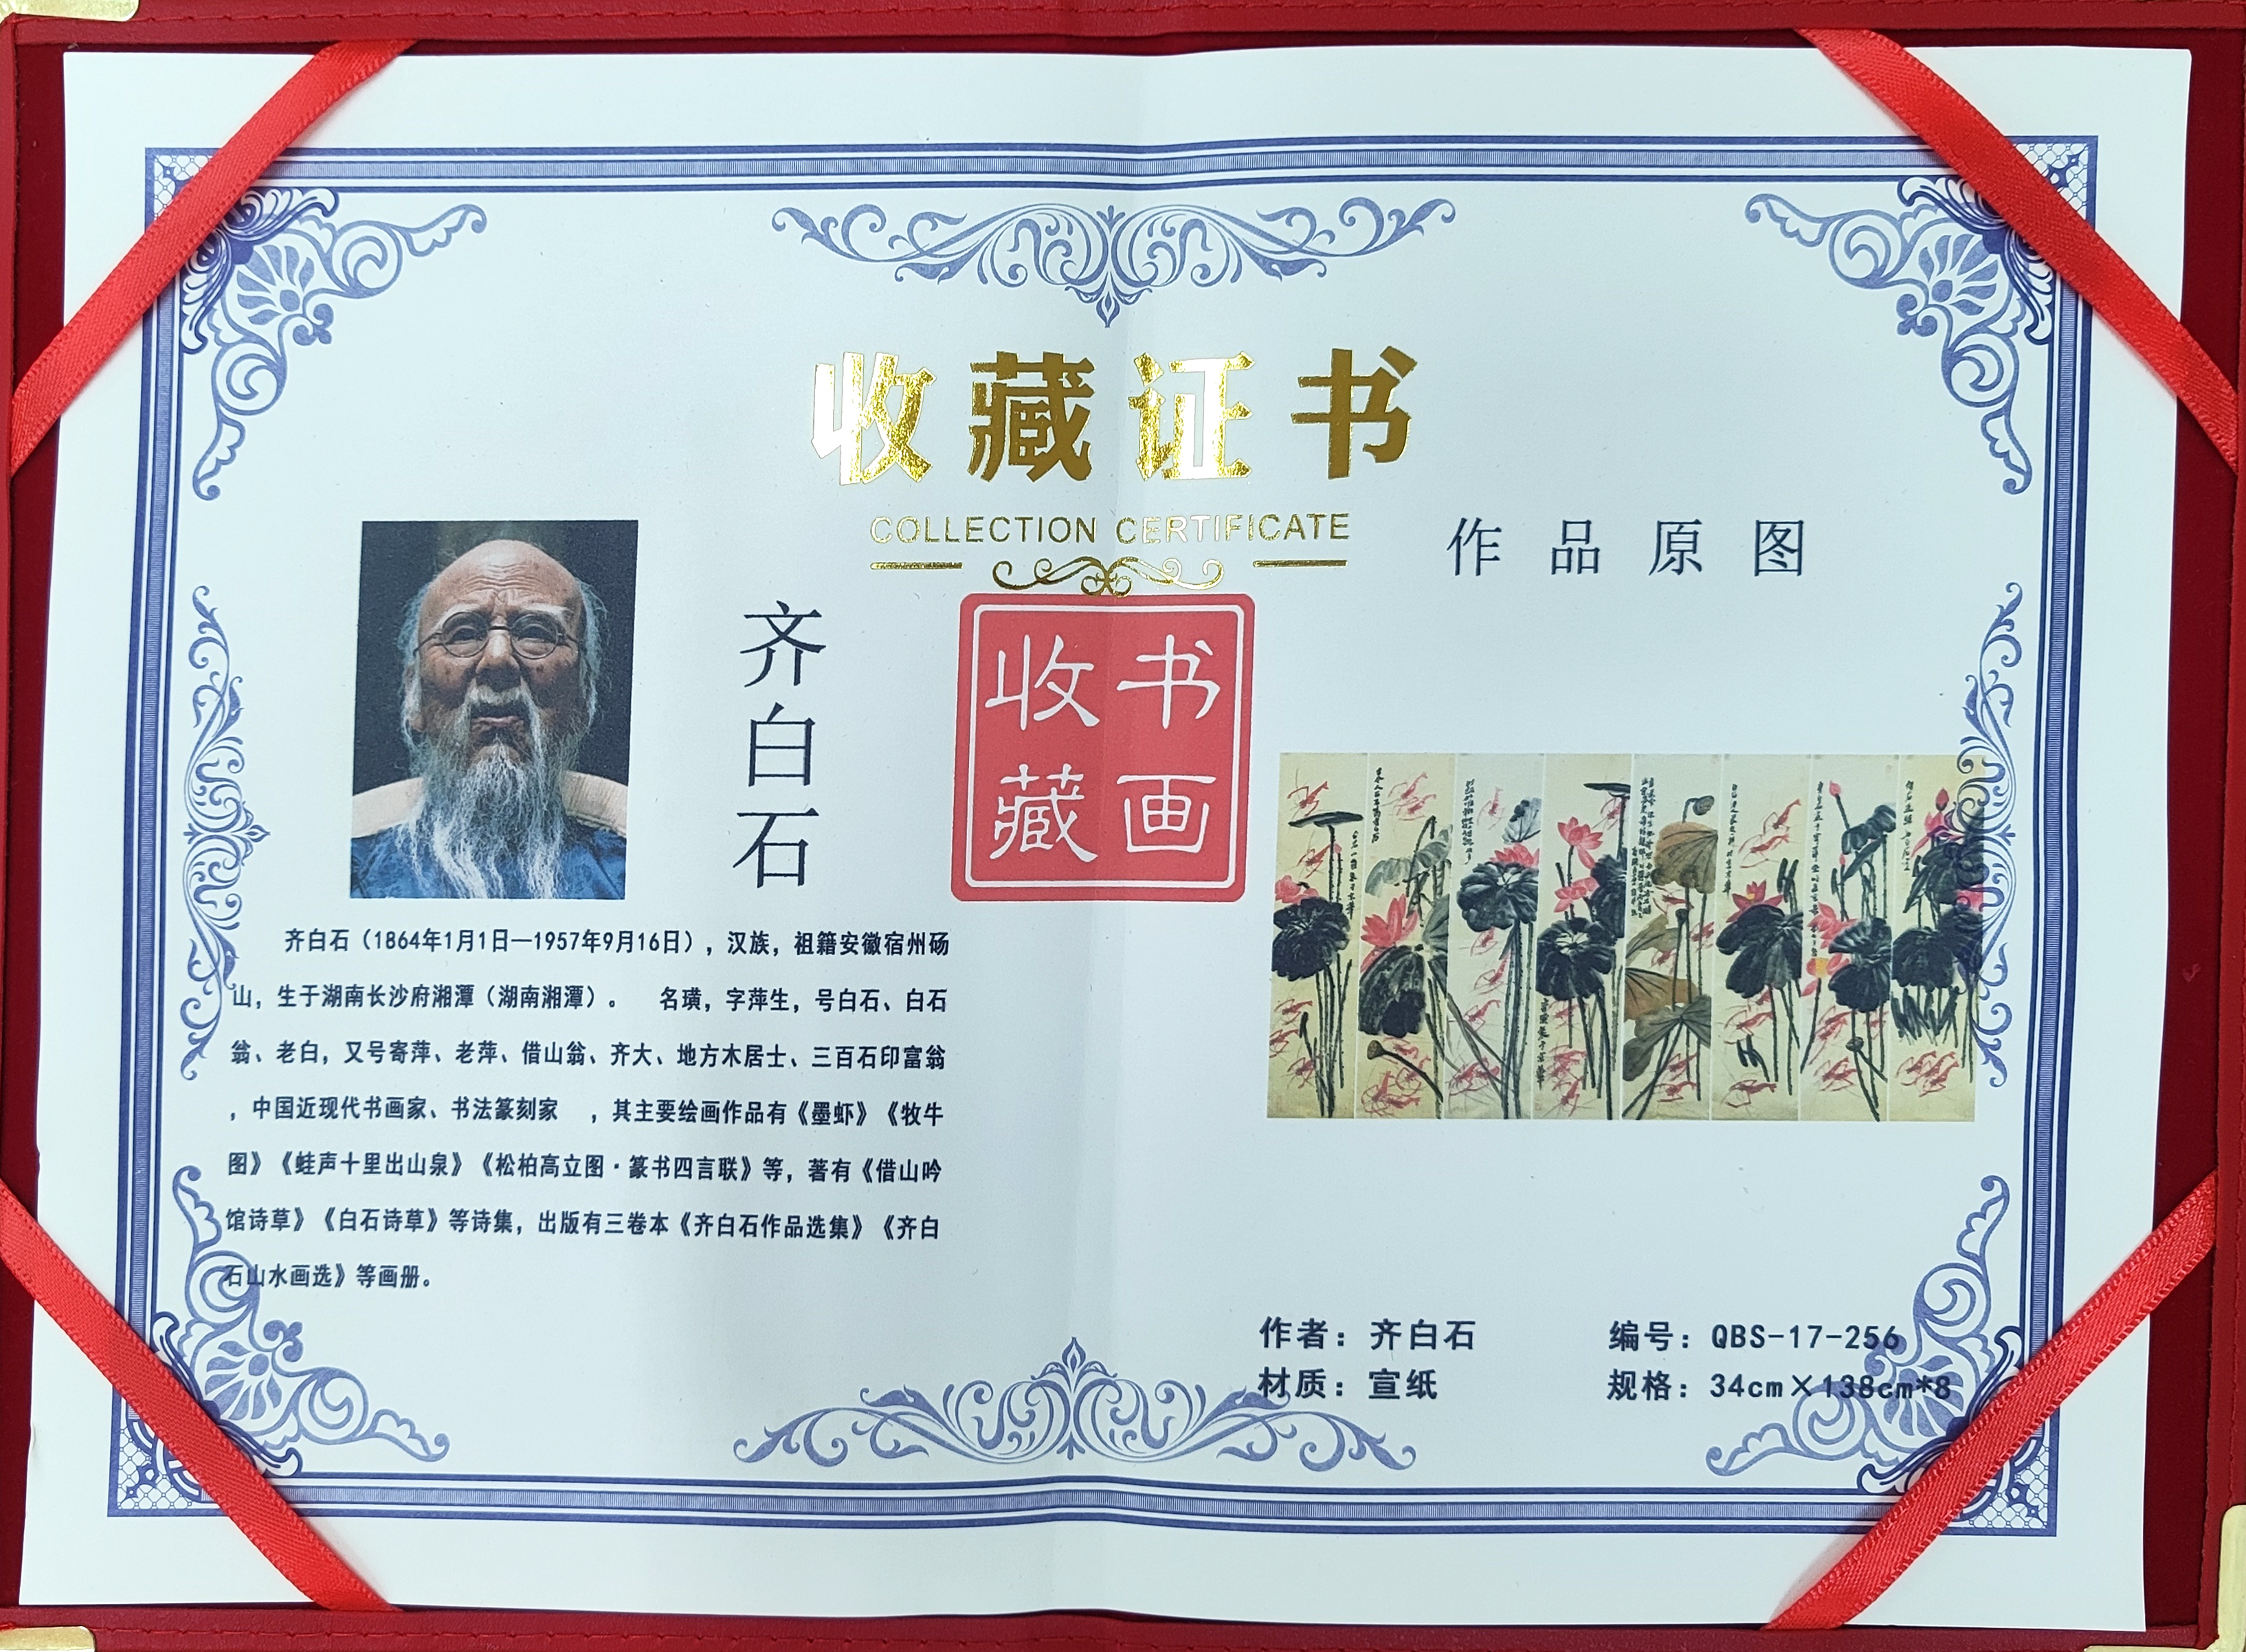 收藏证书
COLLECTION CERTIFICATE
作品原图
齐白石
书画
收藏
齐白石（1864年1月1日—1957年9月16日），汉族，祖籍安徽宿州砀
山，生于湖南长沙府湘潭（湖南湘潭）。 名璜，字萍生，号白石、白石
翁、老白，又号寄萍、老萍、借山翁、齐大、地方木居士、三百石印富翁
，中国近现代书画家、书法篆刻家 ，其主要绘画作品有《墨虾》《牧牛
图》《蛙声十里出山泉》《松柏高立图·篆书四言联》等，著有《借山吟
馆诗草》《白石诗草》等诗集，出版有三卷本《齐白石作品选集》《齐白
石山水画选》等画册。
作者：齐白石
编号：QBS-17-256
材质：宣纸
规格：34cm×138cm*8